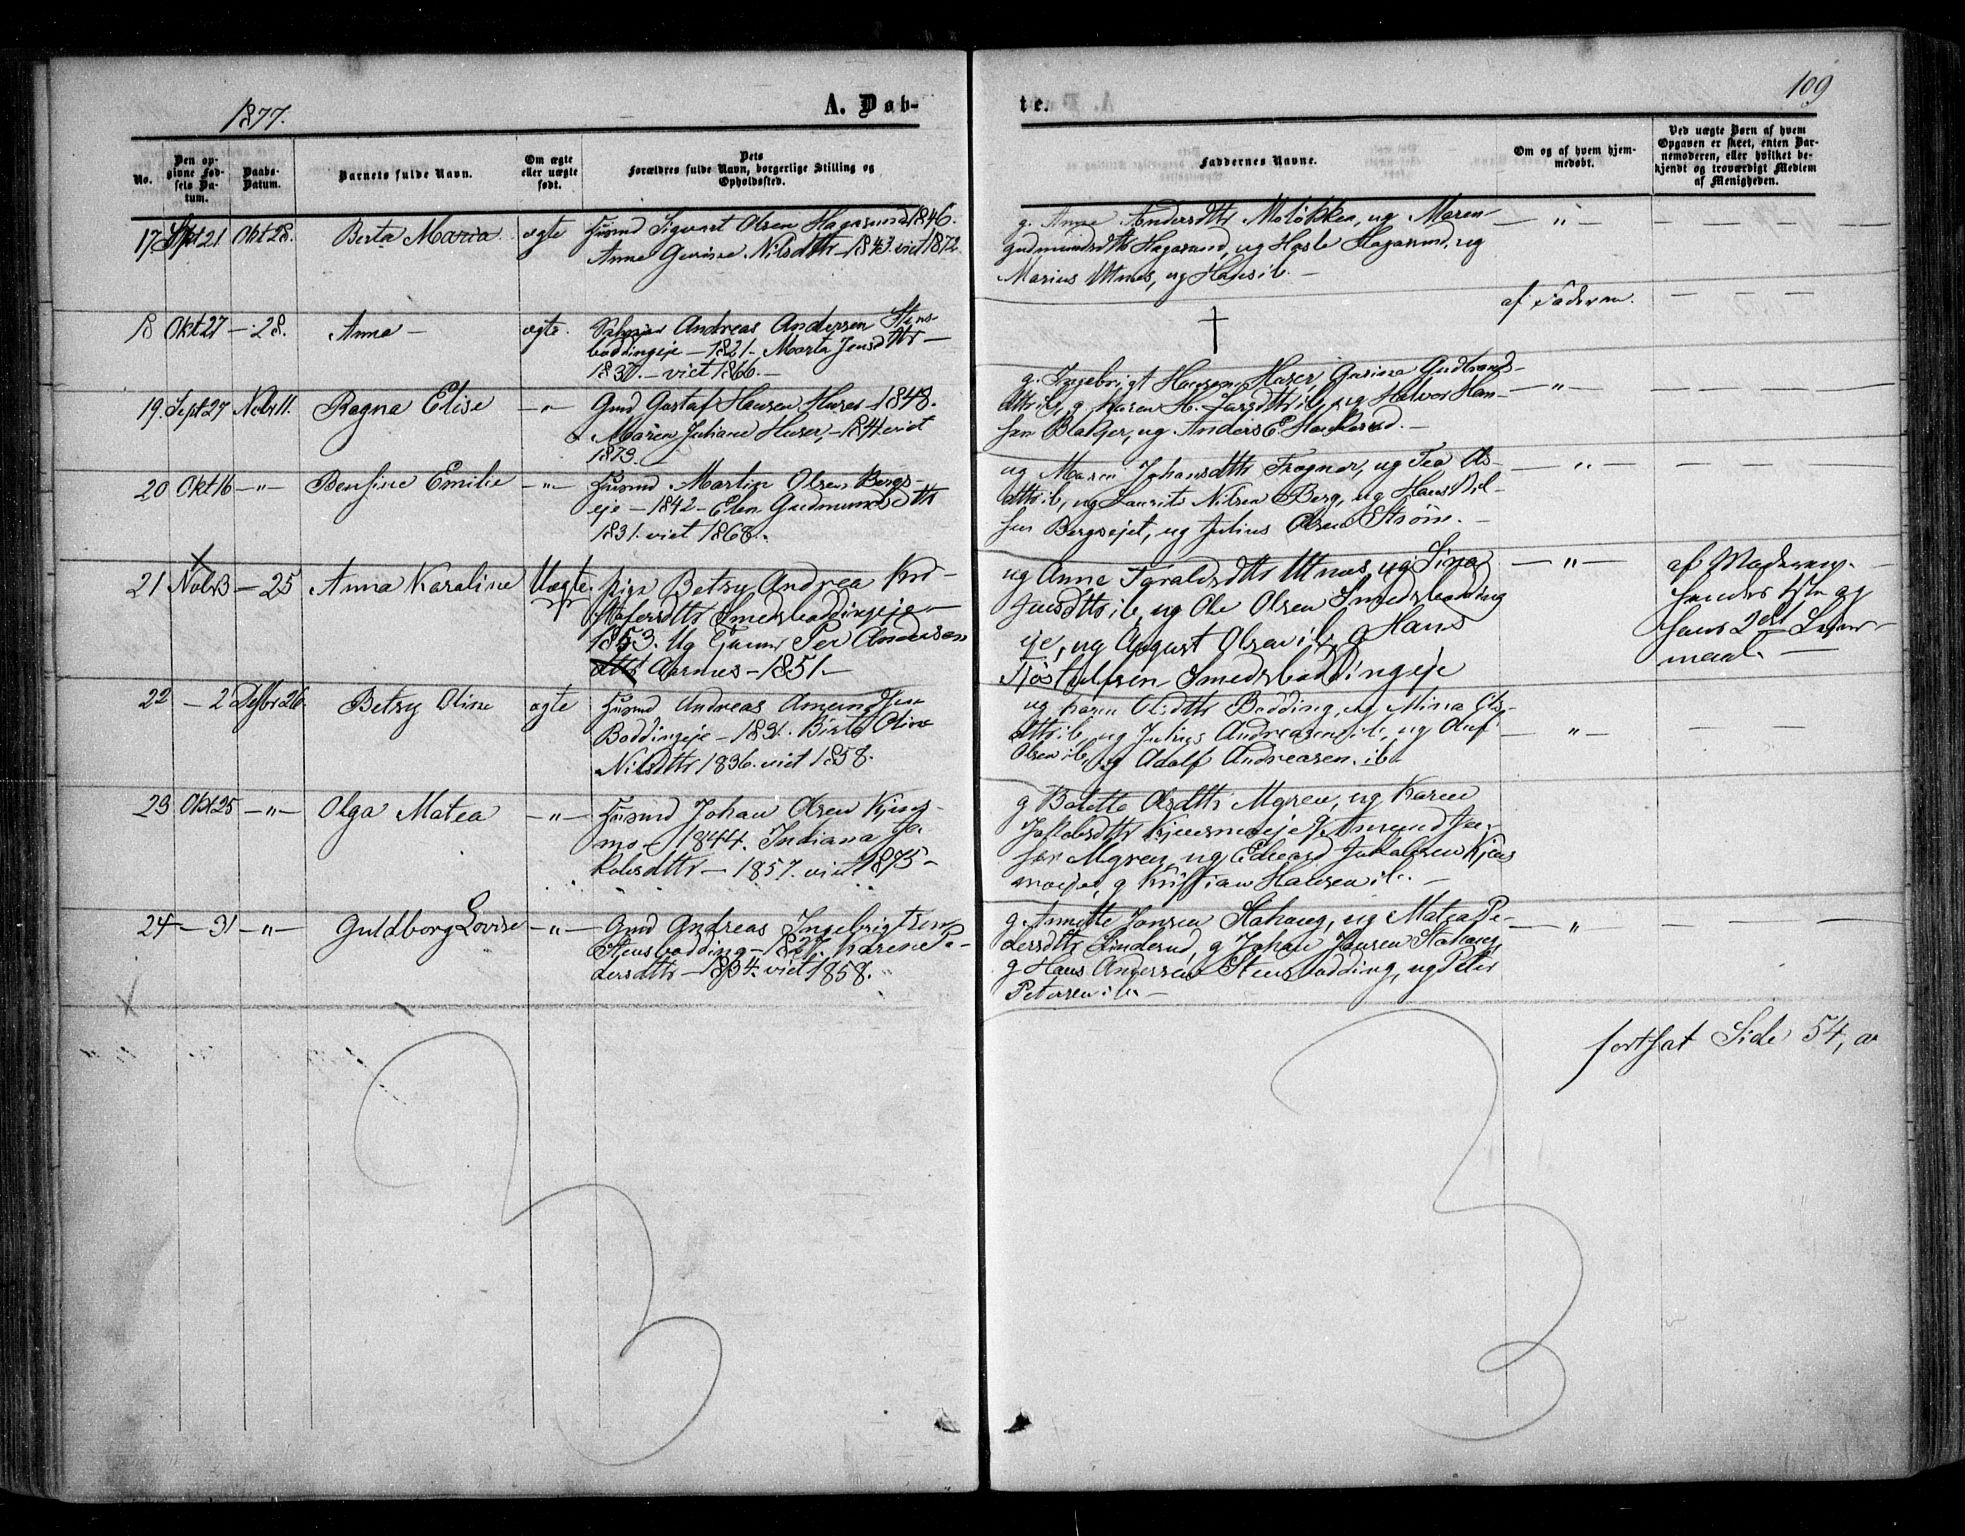 1877.
A. Døb-
te.
109
No.
Den op-
givne Fød-
sels Da-
tum.
Daabs-
Datum.
Barnets fulde Navn.
Om ægte
eller uægte
født.
Dets
Forældres fulde Navn, borgerlige Stilling og
Opholdssted.
Faddernes Navne.
Om og af hvem hjem-
medøbt.
Ved uægte Børn af hvem
Opgaven er skeet, enten Bar-
nemoderen, eller hvilket be-
kjendt og troværdigt Medlem
af Menigheden.
17 Spt 21 Okt 28. Berta Maria ægte Husmd Sigvart Olsen Hagasund 1846.
Anne Gurine Nilsdttr - 1843. viet 1872
g. Anne Andersdttr Moløkken, ug Maren
Gudmundsdttr Hagasund, ug Hasle Hagasund, ug
Marius Utnes, ug Hans ib. —
— " —
18 Okt 27 - 28. Anna - ægte. Andreas Andersen Stens-
boddingeje - 1821 - Marta Jensdttr -
1830. - viet 1866. -
†
af Faderen.
19. Sept 27 Novbr 11. Ragna Elise - " - Gmd Gustaf Hansen Huser - 1848.
Maren Juliane Huser, - 1841. viet
1873.
g. Ingebrigt Hansen Huser, Gurine Gudbrands-
dttr ib, g Karen H. Larsdttr ib, ug Halvor Han-
sen Blakjer, ug Anders E. —
— " —
20 Okt 16 - " - Bensine Emilie - " - Husmd Martin Olsen Bergs-
eje - 1842 - Elen Gudmundsdttr
1831. viet 1868.
ug Maren Johansdttr Trogner, ug Tea Ols-
dttr ib, ug Laurits Nilsen Berg, ug Hans Nil-
sen Bergsejet, ug Julius Olsen Strøm. -
— " —
21 Novbr 3 - 25 Anna Karoline Uægte. Pige Betsy Andrea Kri-
stofersdttr Smedsboddingeje -
1853. Ug Per Andersen
dttr Aarnes - 1851. -
ug Anne Taraldsdttr Utnes, ug Sina
Jensdttr ib, ug Ole Olsen Smedsbodding
eje, ug August Olsen ib, g Hans
Kristofersen Smedsboddingeje
— " —
af Moderen,
hendes 1ste og
hans 2det Leier-
maal. —
22 - 2 Desbr 26. Betsy Oline ægte Husmd Andreas Amundsen
Boddingeje - 1831. Birte Oline
Nilsdttr 1836. viet 1858.
ug Karen Olsdttr Bodding, ug Mina Ols-
dttr ib, ug Julius Andreasen ib, ug Olaf
Olsen ib, ug Adolf Andreasen ib.
— " —
23 Okt 25 - " - Olga Matea - " - Husmd Johan Olsen Kjens-
mo - 1844. Indiana Ja-
kobsdttr - 1857. viet 1875 -
g Bolette Olsdttr Myren, ug Karen
Jakobsdttr Kjensmoeje, g Amund
Myren, ug Edvard Jakobsen Kjens
moeje, g Kristian Hansen ib. -
— " —
24 - 31 - " - Guldborg Lovise - " - Gmd Andreas Ingebrigtsen
Stensbodding - 1827. Karen Pe-
dersdttr - 1834. viet 1858.
g. Annette Jansen Stahaug, ug Matea Pe-
dersdttr Linderud, g Johan Jansen Stahaug
g Hans Andersen Stensbodding, ug Peter
Petersen ib. -
— " —
fortsat Side 54, a